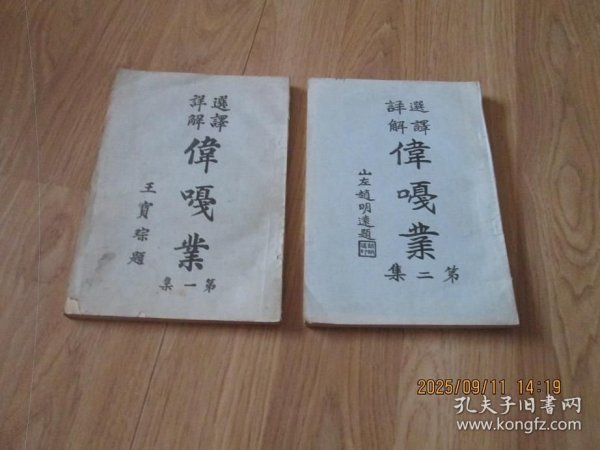 選譯
詳解
偉嘎業
第一集
王寶琮題
選譯
詳解
偉嘎業
第二集
山左趙明遠題
2025/09/11 14:19
孔夫子旧书网
www.kongfz.com